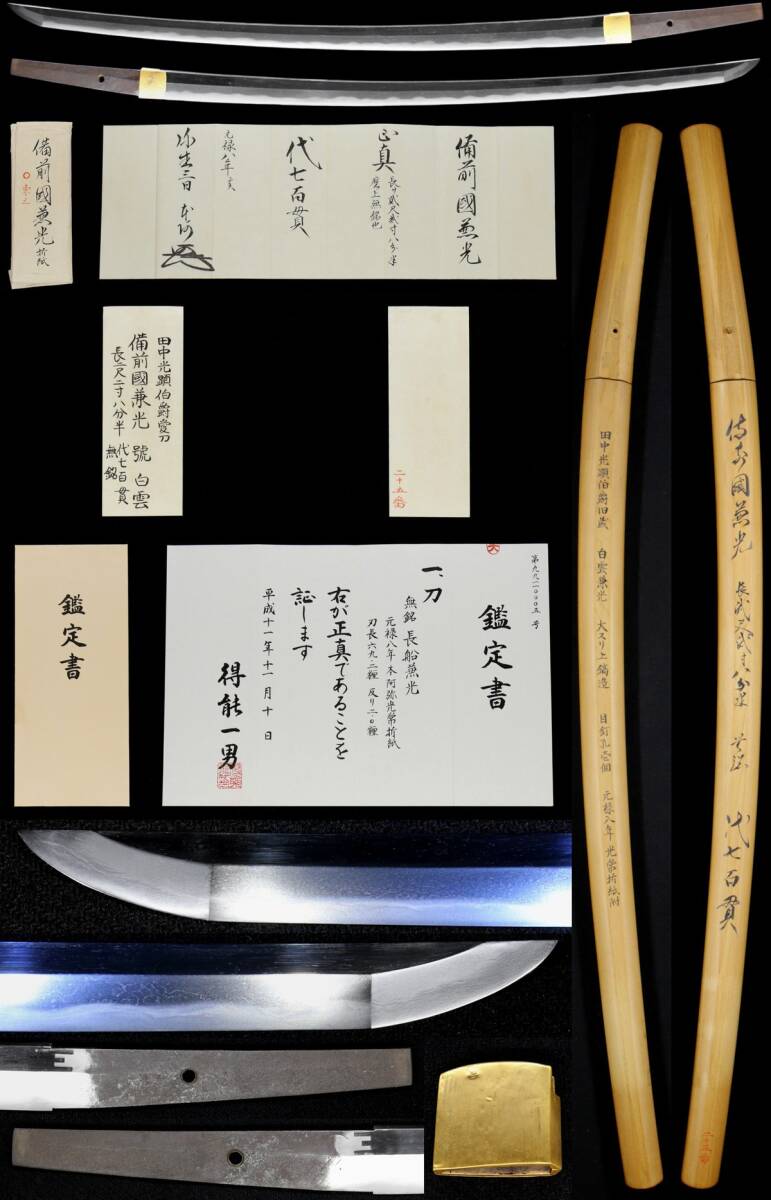 備前國兼光 折紙
備前國兼光
正真 長サ貳尺貳寸八分半
磨上無銘也
代七百貫
元禄八年亥
弥生三日 本阿
田中光顕伯爵愛刀
備前國兼光 號 白雲
長二尺二寸八分半 代七百貫
無銘
二十五番
鑑定書
第九九一一〇〇〇五号
鑑定書
一、刀
無銘 長船兼光
元禄八年本阿弥光常折紙
刃長六九・二糎 反り二・〇糎
右が正真であることを
証します
平成十一年十一月十日
得能一男
田中光顕伯爵旧蔵 白雲兼光 大スリ上鎬造 目釘孔壱個 元禄八年 光常折紙附
備前國兼光 長貳尺貳寸八分半 無銘 代七百貫